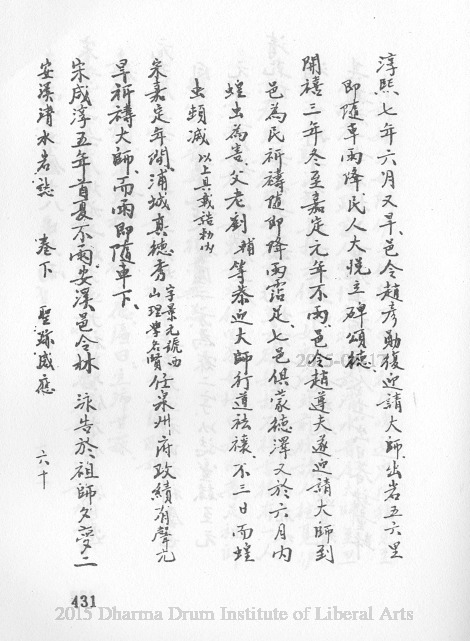 淳熙七年六月又旱、邑令趙彥勛復迎請大師、出岩五六里
即隨車雨降、民人大悅立碑頌德、
開禧三年冬至嘉定元年不雨、邑令趙遵夫遂迎請大師到
邑為民祈禱隨即降雨霑足、七邑俱蒙德澤又於六月內
蝗虫為害父老劉 等恭迎大師行道祛禳、不三日雨蝗
虫頓滅以上具載誥勅內
宋嘉定年間、浦城真德秀字景元號西山理學名賢任泉州府政績有聲元
旱祈禱大師、而雨即隨車下、
宋咸淳五年首夏不雨、安溪邑令林 泳告於祖師夕夢二
安溪清水岩誌 卷下 聖跡感應 六十
431
2015 Dharma Drum Institute of Liberal Arts